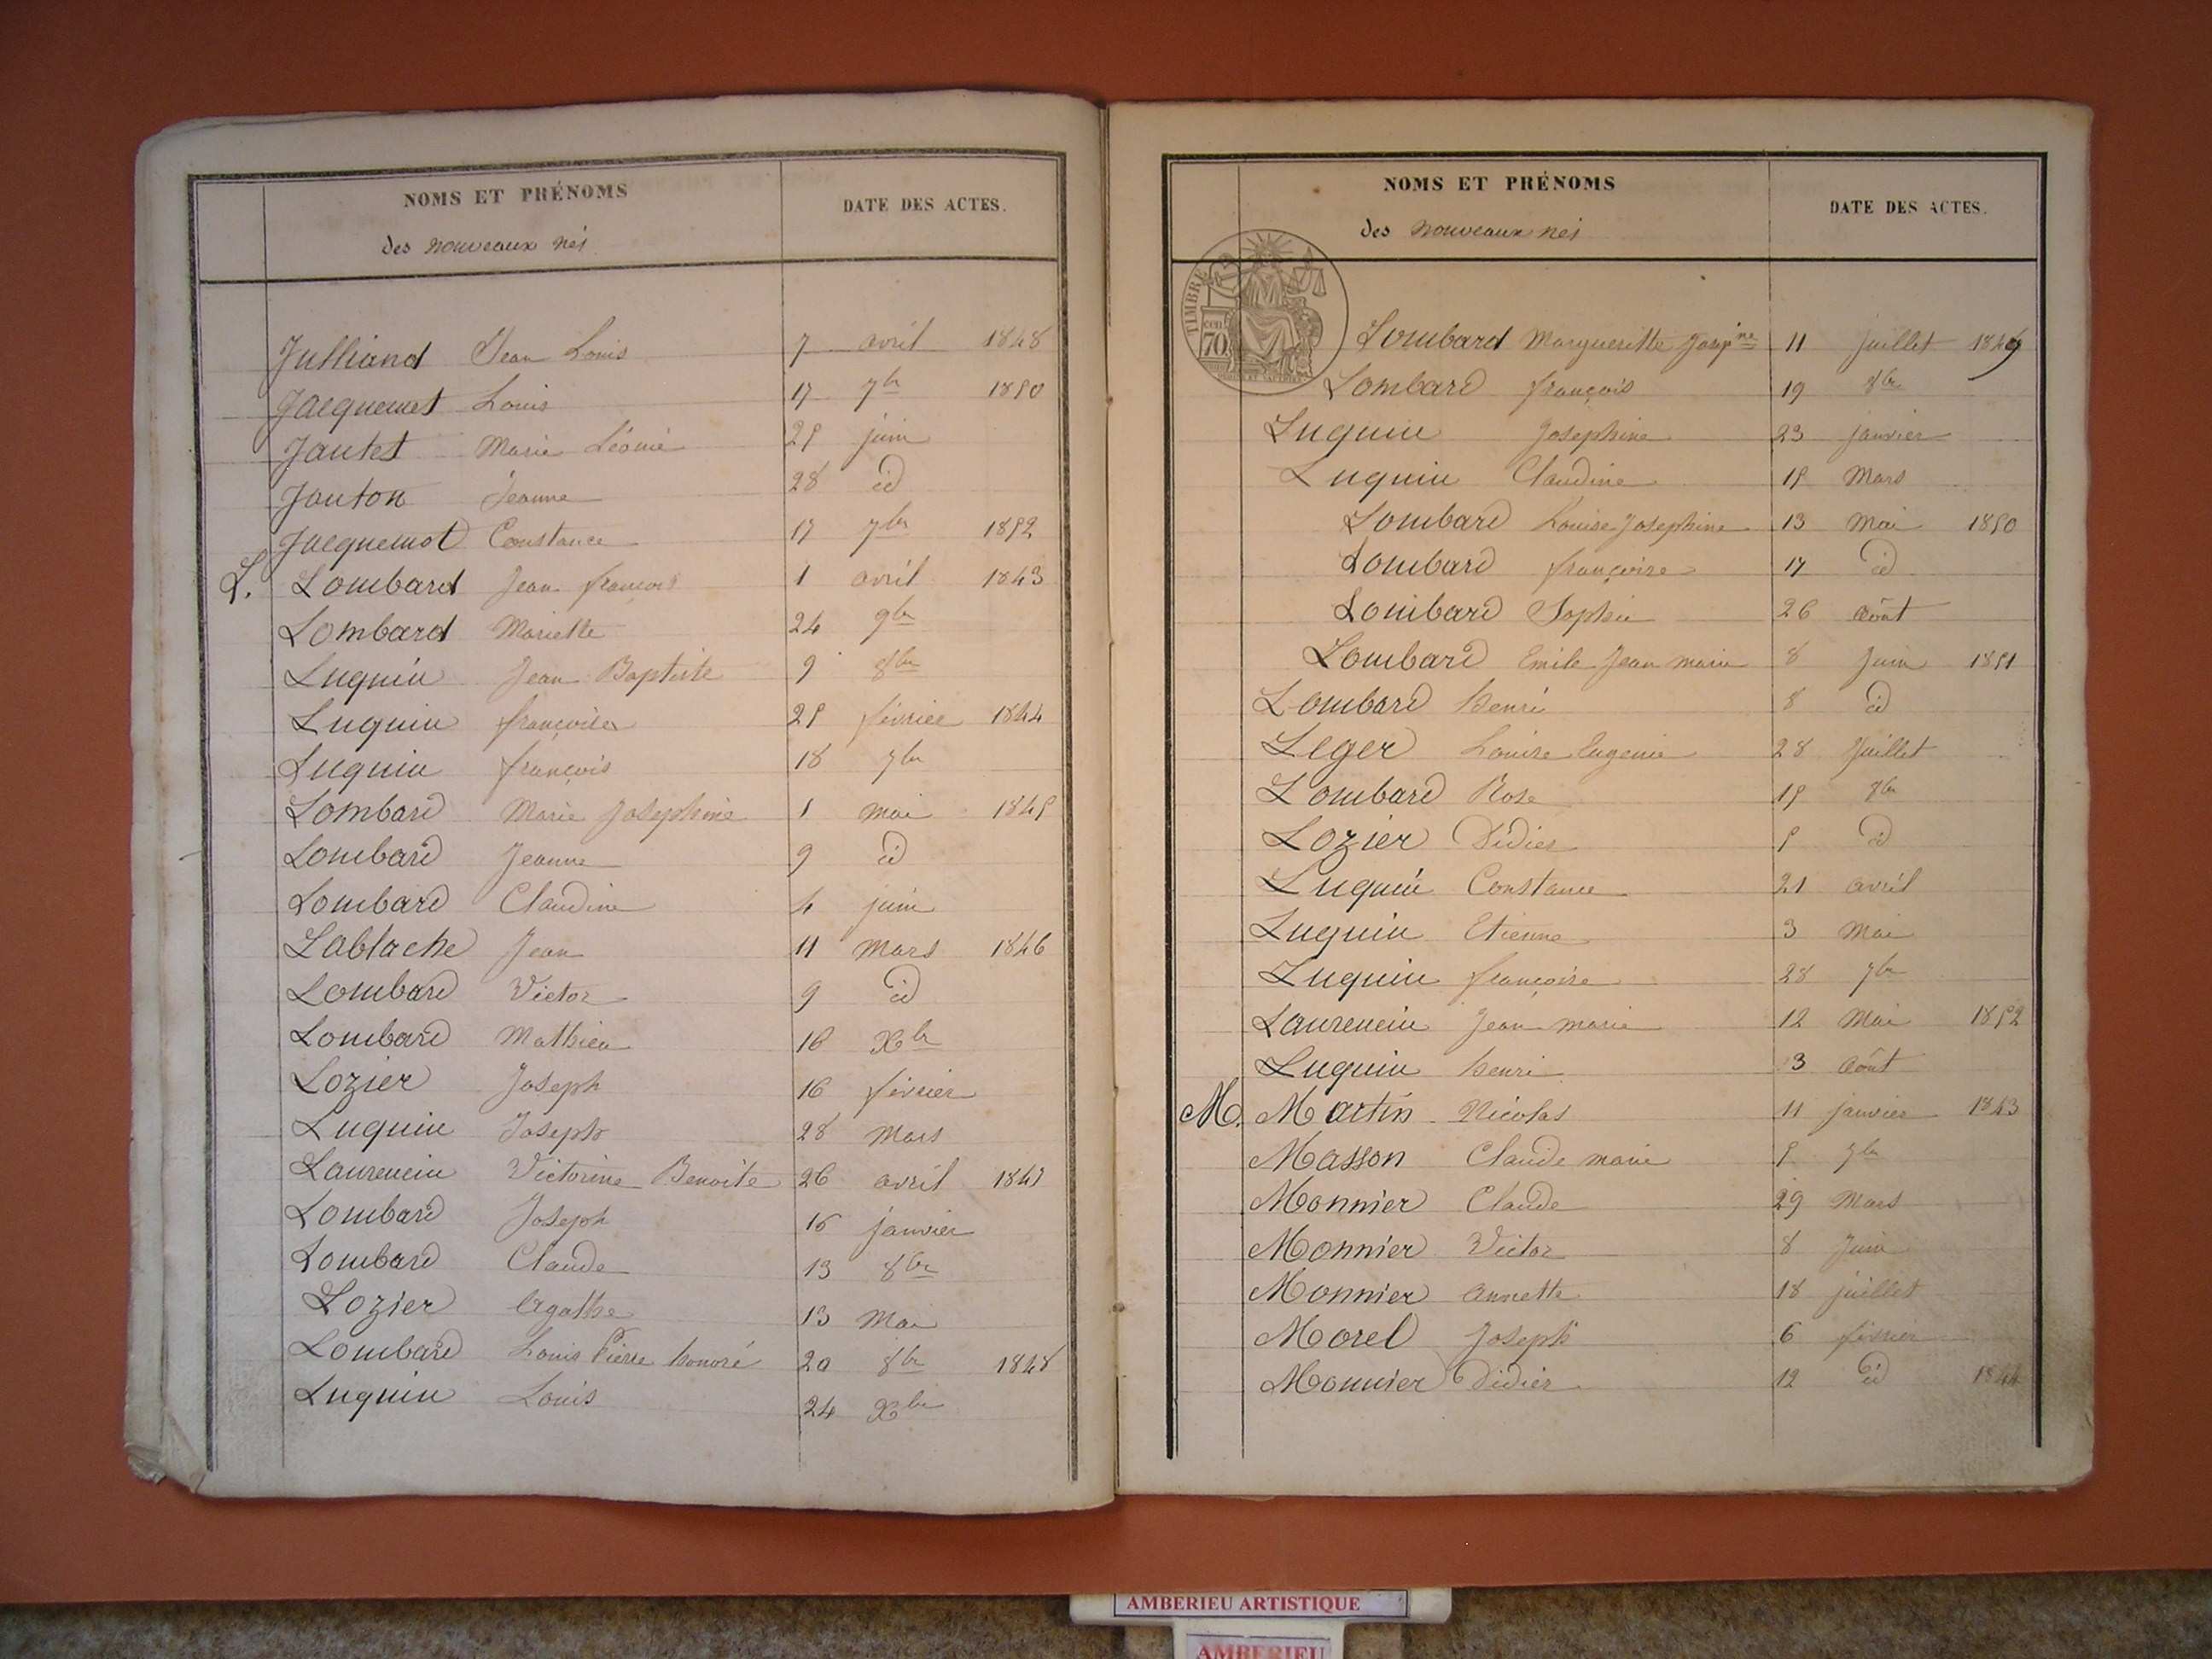 NOMS ET PRÉNOMS
des nouveaux nés
DATE DES ACTES.
Julliand Jean Louis 7 avril 1848
Jacquemet Louis 17 7bre 1850
Jantet Marie Léonie 25 juin
Janton Jeanne 28 id
Jacquemot Constance 17 7bre 1852
L. Lombard Jean françois 1 avril 1843
Lombard Mariette 24 9bre
Luquin Jean Baptiste 9 8bre
Luquin françoise 25 février 1844
Luquin françois 18 7bre
Lombard Marie Josephine 1 mai 1845
Lombard Jeanne 9 id
Lombard Claudine 4 juin
Lablache Jean 11 mars 1846
Lombard Victor 9 id
Lombard Mathieu 16 Xbre
Lozier Joseph 16 février
Luquin Joseph 28 mars
Laurencin Victorine Benoite 26 avril 1847
Lombard Joseph 16 janvier
Lombard Claude 13 8bre
Lozier Agathe 13 Mai
Lombard Louis Pierre honoré 20 8bre 1848
Luquin Louis 24 Xbre
NOMS ET PRÉNOMS
des nouveaux nés
DATE DES ACTES.
TIMBRE
70
Lombard Margueritte Jospine 11 juillet 1849
Lombard françois 19 8bre
Luquin Josephine 23 janvier
Luquin Claudine 15 Mars
Lombard Louise Josephine 13 Mai 1850
Lombard françoise 17 id
Lombard Sophie 26 Août
Lombard Emile Jean marie 8 Juin 1851
Lombard henri 8 id
Leger Louise Eugenie 28 Juillet
Lombard Rose 15 9bre
Lozier Didier 5 id
Luquin Constance 21 avril
Luquin Etienne 3 Mai
Luquin françoise 28 7bre
Laurencin Jean marie 12 Mai 1852
Luquin henri 3 Août
M. Martin Nicolas 11 janvier 1843
Masson Claude marie 5 7bre
Monnier Claude 29 Mars
Monnier Victor 8 Juin
Monnier annette 18 juillet
Morel Joseph 6 février
Monnier Didier 12 id 1844
AMBERIEU ARTISTIQUE
AMBERIEU